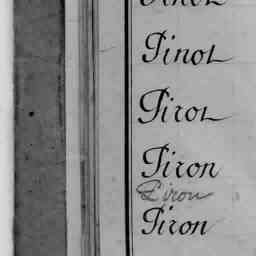 Pinot
Pirot
Piron
Piron
Piron